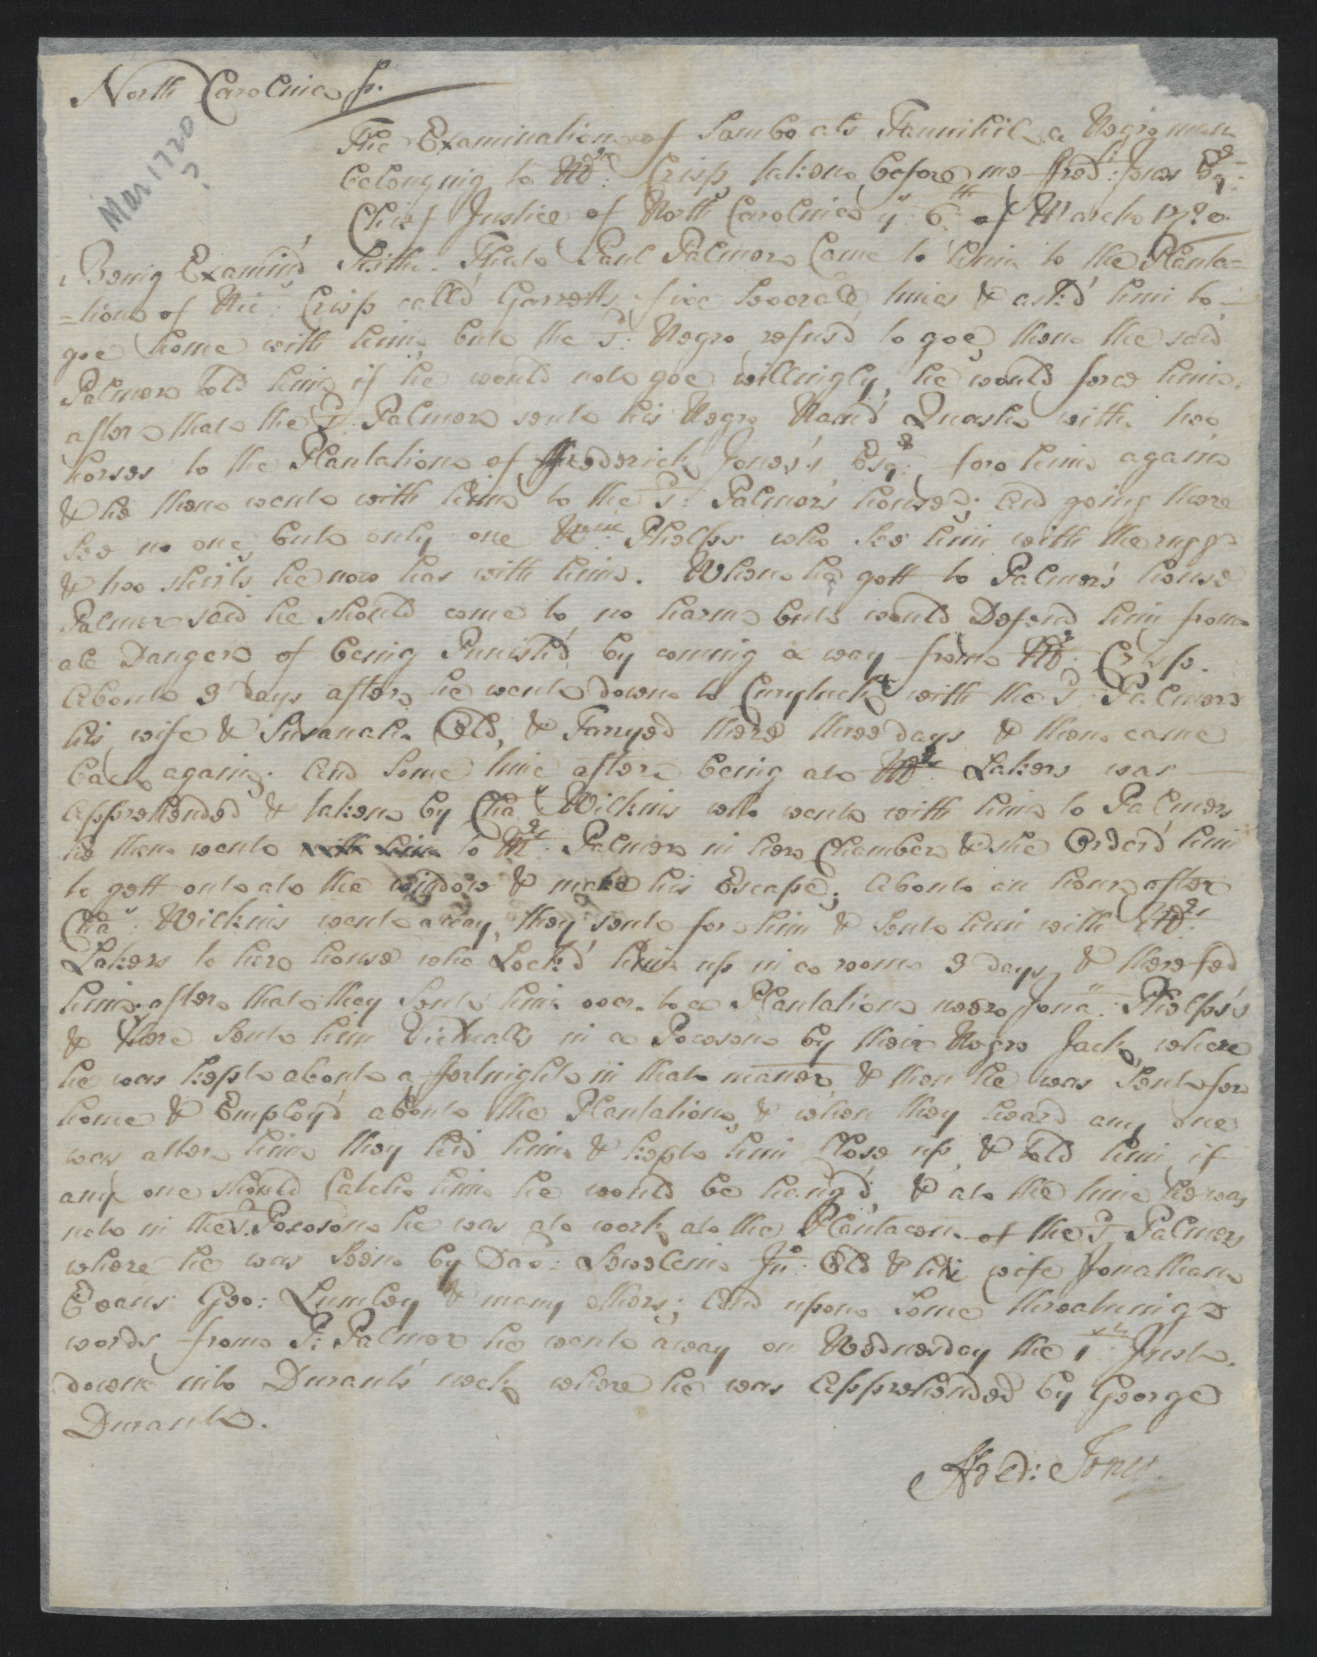 North Carolina ss.
Mar 1720
?
The Examination of Sambo als Fannihil a Negro man
belonging to Mr: Crisp taken before me Fred: Jones Esqr:
Chief Justice of North Carolina ye 6th of March 1720.
Being Examin'd Saith. That Paul Palmer Came to him to the Planta=
=tion of Nic: Crisp call'd Garretts, five Severall times & ask'd him to
goe home with him, but the sd: Negro refus'd to goe, then the said
Palmer told him if he would not goe willingly, he would force him.
after that the sd: Palmer sent his Negro Nam'd Quash with two
horses to the Plantation of Frederick Jones's Esqr: for him again
& he then went with him to the sd: Palmer's house; and going there
See no one but only one Wm: Phelps who See him with the rugg
& two shirts he now has with him. When he gott to Palmer's house
Palmer said he should come to no harm but would Defend him from
all Danger of being Punish'd by coming a way from Mr: Crisp.
About 3 days after he went down to Curytuck with the sd: Palmer
his wife & Susanah Old, & Tarryed there three days & then came
back again; and Some time after being at Mrs: Lakers was
apprehended & taken by Chas: Wilkins who went with him to Palmers
he then went with him to Mrs: Palmer in her Chamber & she Order'd him
to gett out at the window & make his Escape; about an hour after
Chas: Wilkins went away, they sent for him & Sent him with Mrs:
Lakers to her house who Lock'd him up in a room 3 days & there fed
him; after that they Sent him over to a Plantation near Jonan: Phelps's
& there Sent him Victualls in a Pocoson by their Negro Jack, where
he was kept about a fortnight in that maner, & then he was Sent for
home & Employ'd about the Plantation, & when they heard any one
was after him they hid him & kept him Close up, & told him if
any one should Catch him he would be hang'd, & at the time he was
not in the sd: Pocoson he was at work at the Plantacon of the sd: Palmers
where he was Seen by Dav: Jno: Old & his wife Jonathan
Evans Geo: Lumley & many others; and upon Some threatning
words from P: Palmer he went away on Wednesday the 1st: Inst.
down into Durants neck where he was Apprehended by George
Durant.
Fred: Jones.